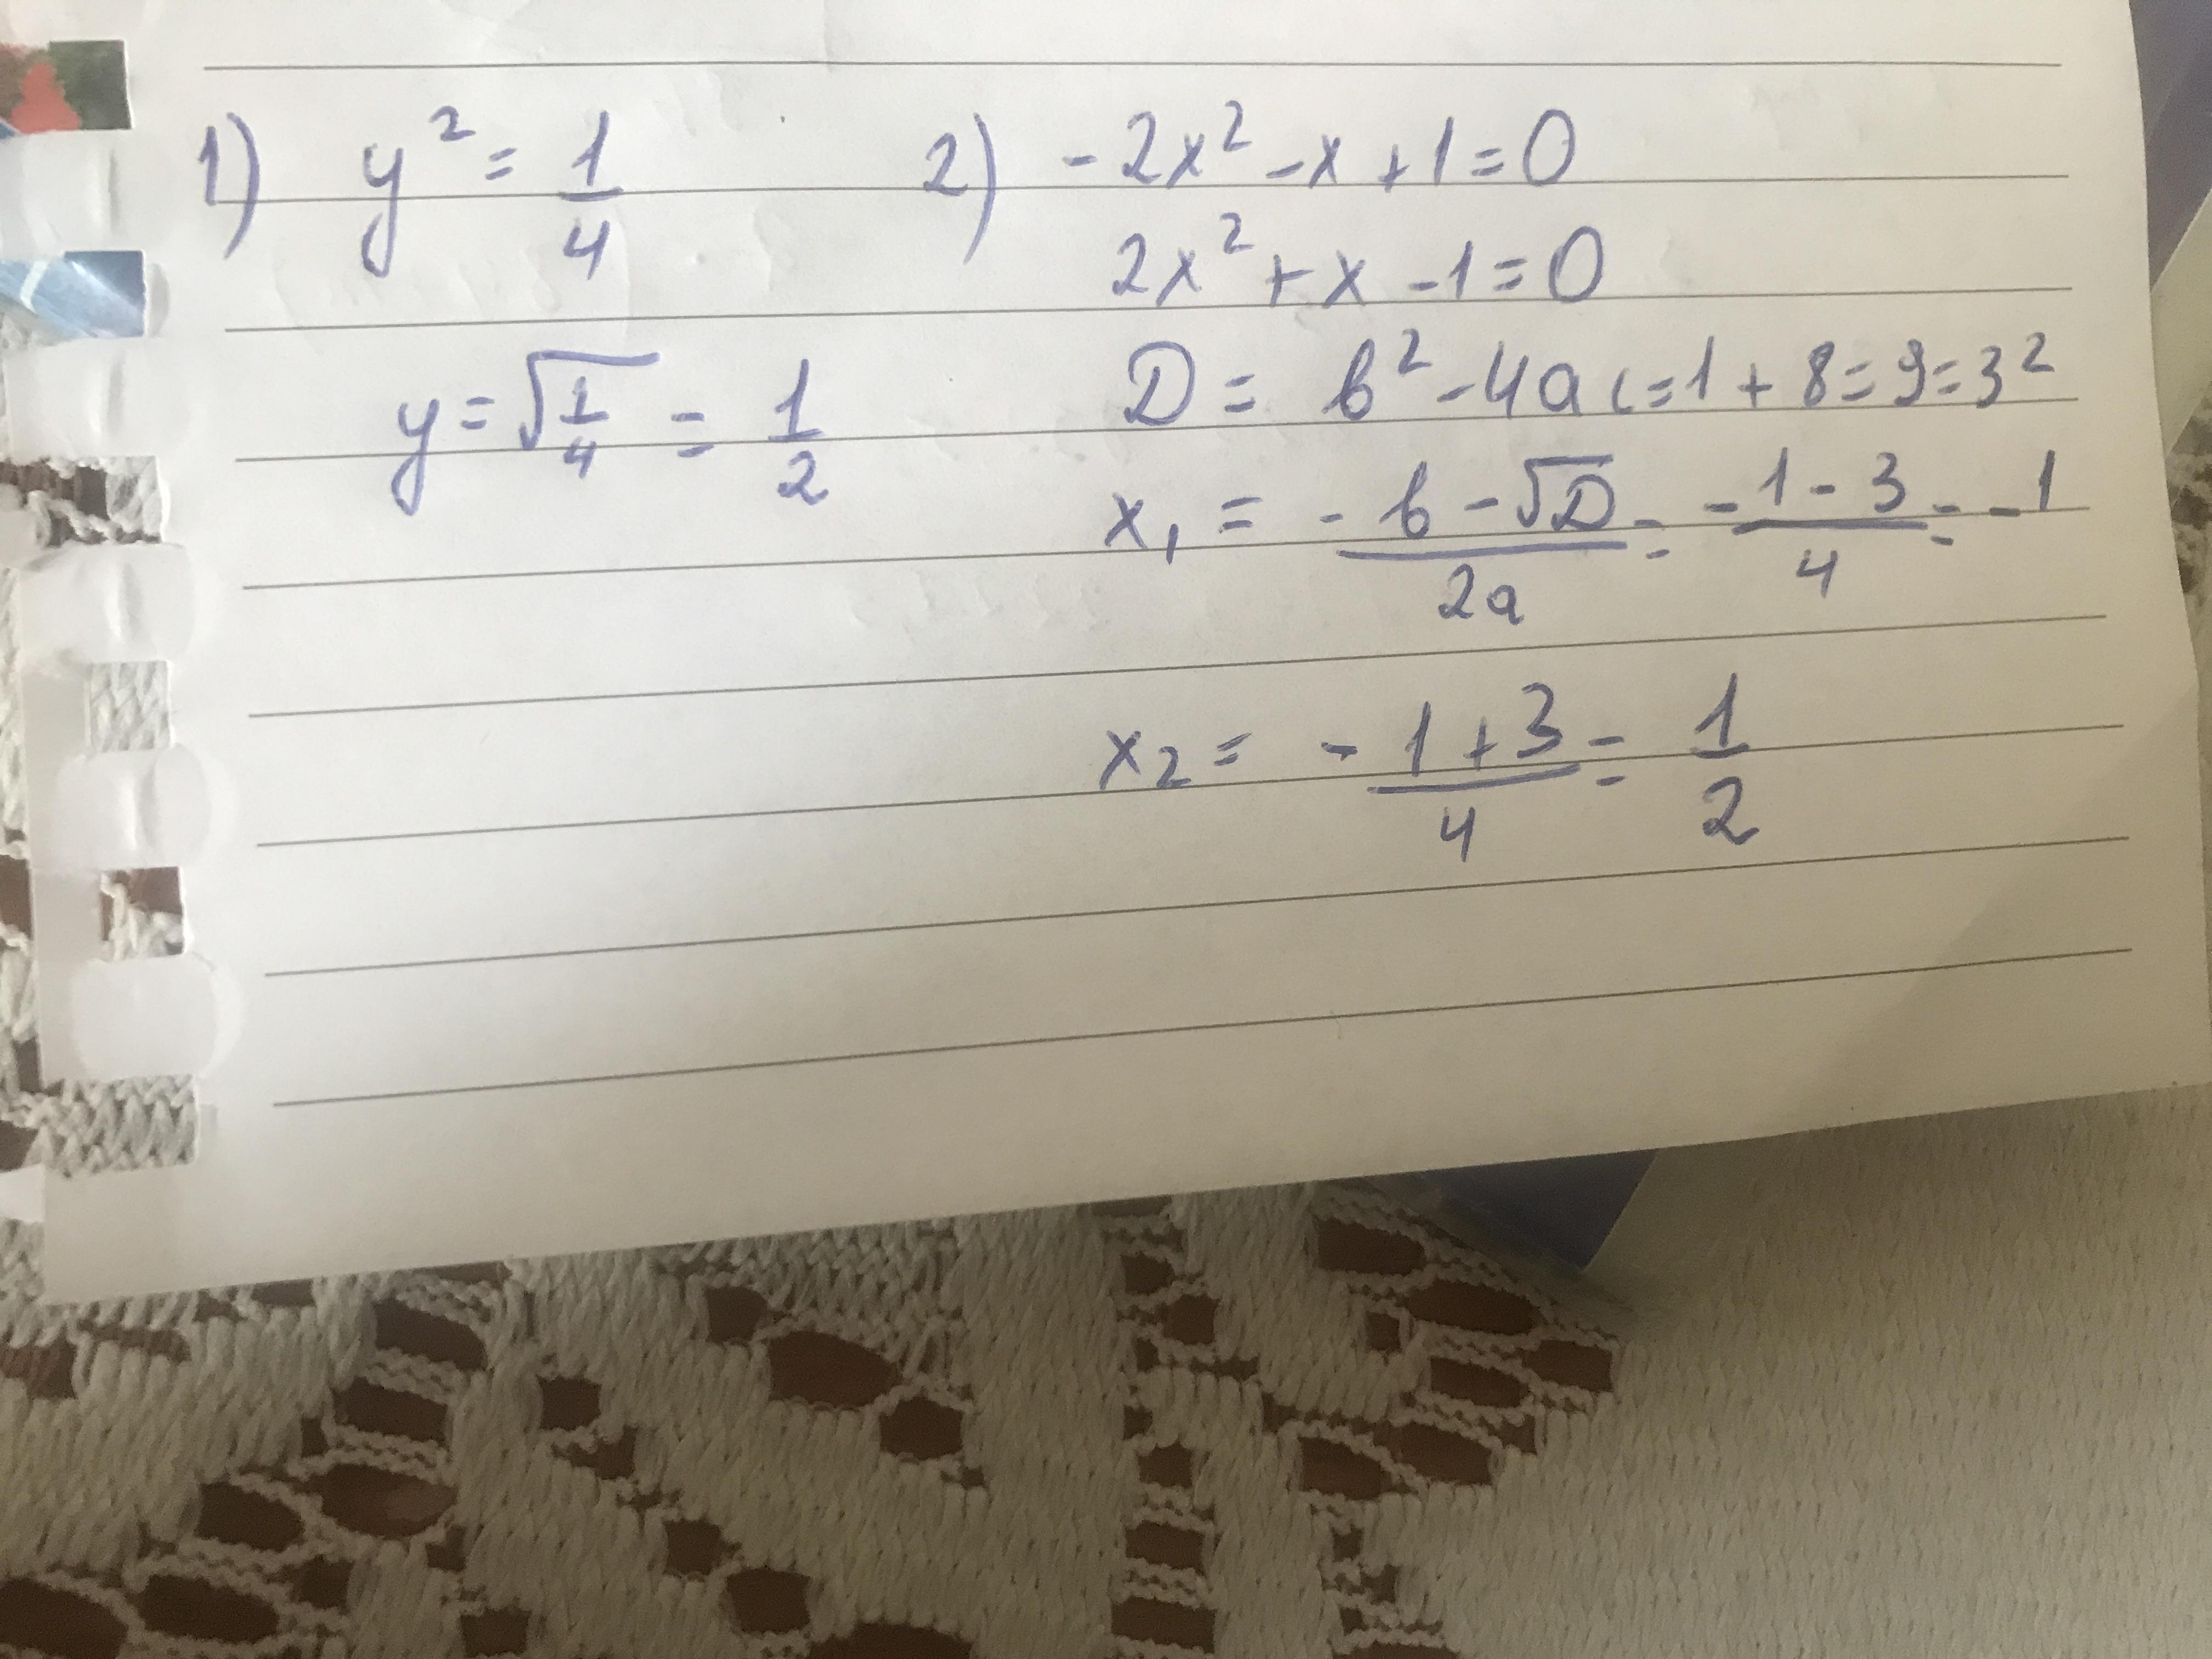 1) y² = 1/4
y = √(1/4) = 1/2
2) -2x² - x + 1 = 0
2x² + x - 1 = 0
D = b² - 4ac = 1 + 8 = 9 = 3²
x₁ = (-b - √D)/2a = (-1 - 3)/4 = -1
x₂ = (-1 + 3)/4 = 1/2